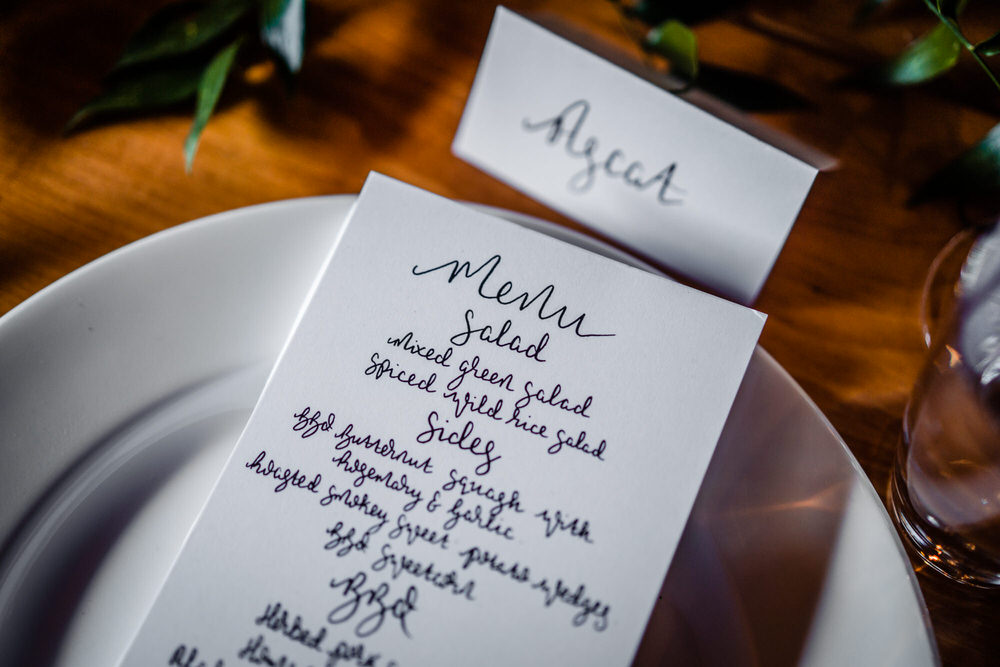 Menu
Salad
Mixed green salad
Spiced wild rice salad
Sides
BBQ Butternut squash with
Rosemary & Garlic
Roasted smokey sweet potato wedges
BBQ Sweetcorn
BBQ
Herbed pork